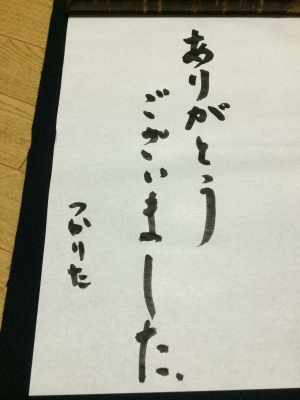 ありがとう
ございました、
つかりた